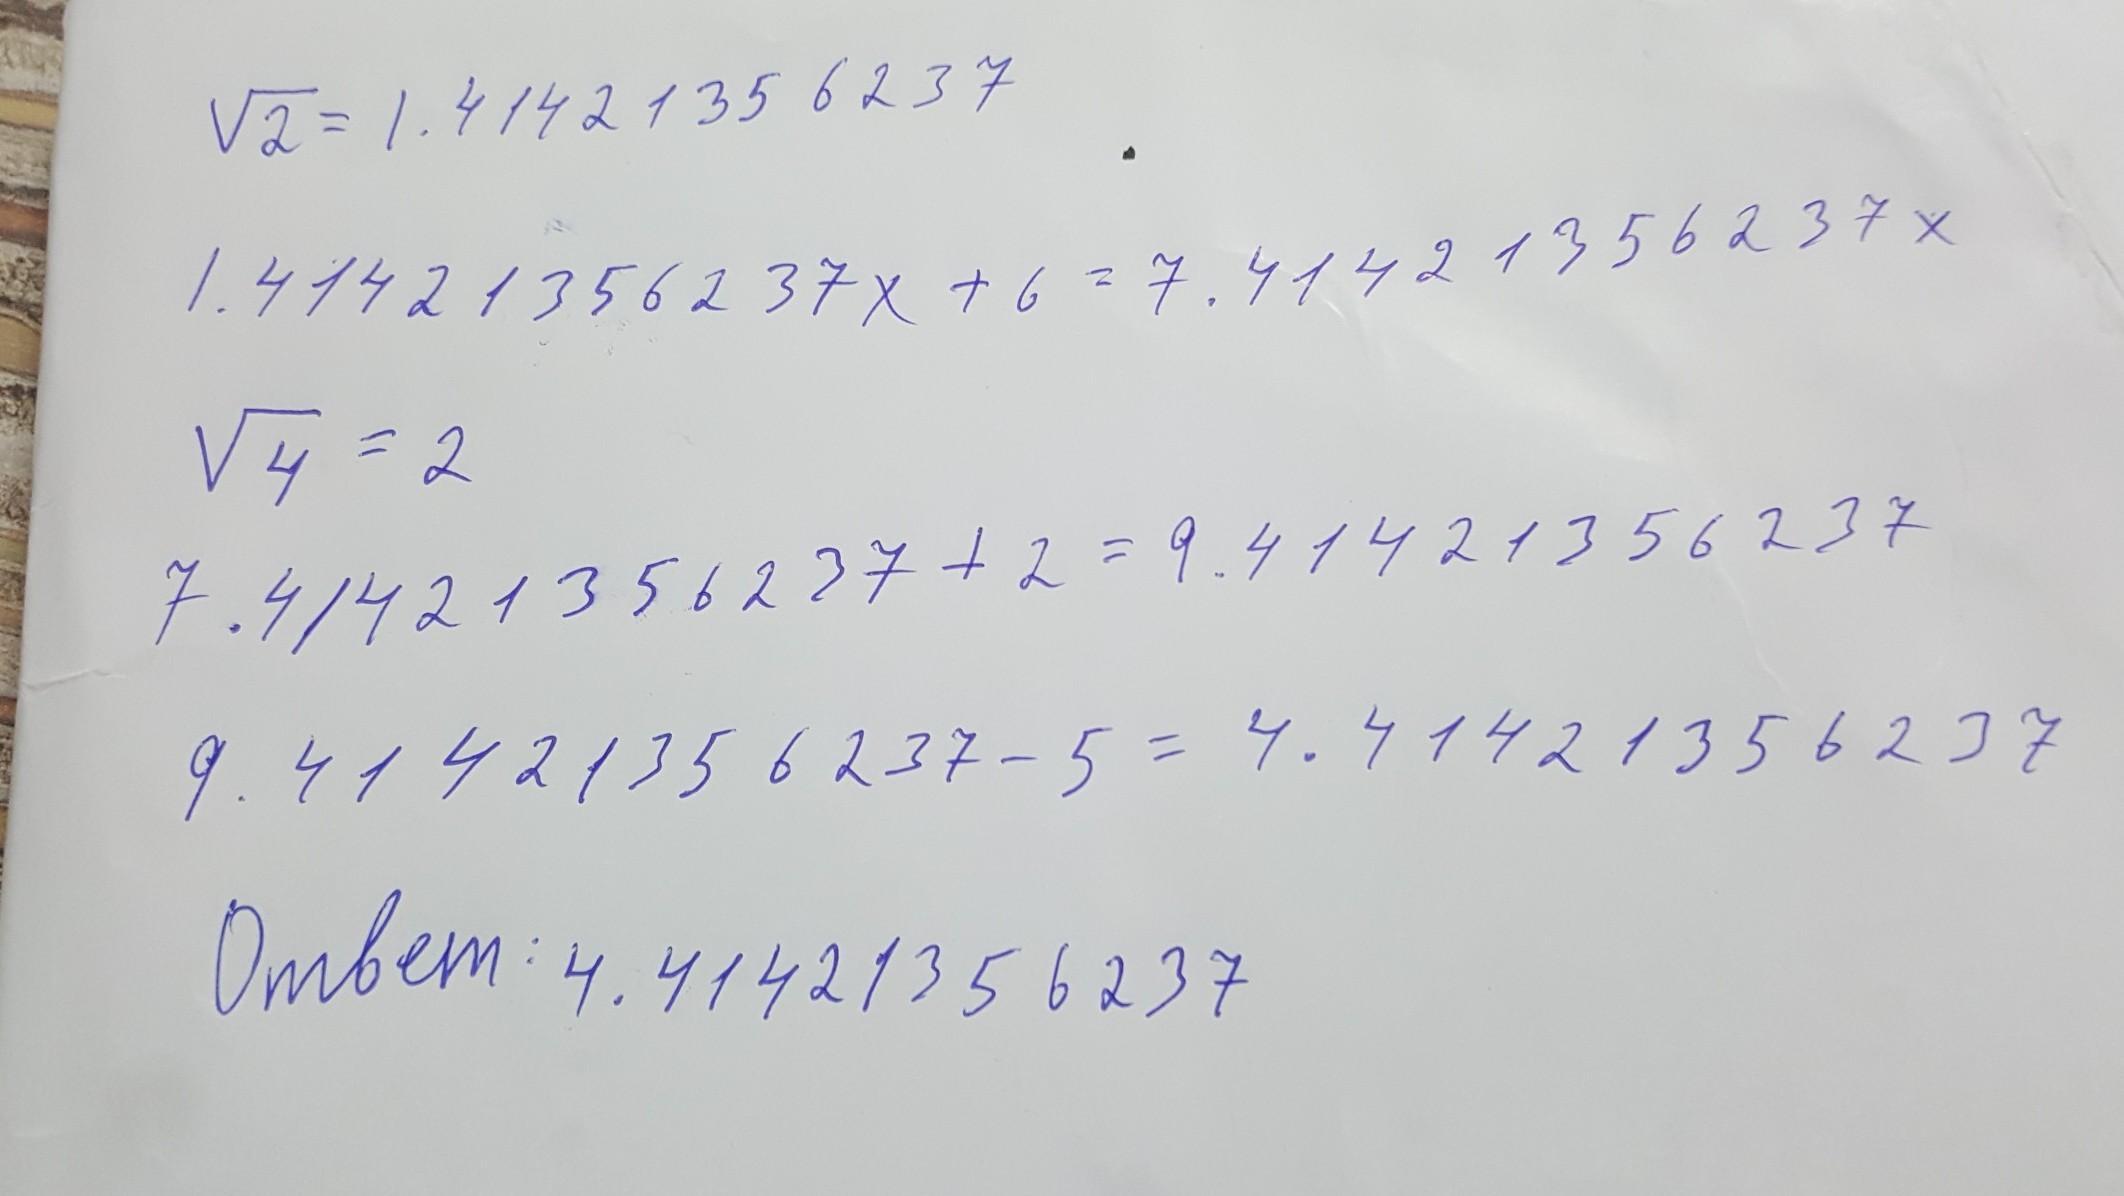 √2 = 1.41421356237
1.41421356237x + 6 = 7.41421356237x
√4 = 2
7.41421356237 + 2 = 9.41421356237
9.41421356237 - 5 = 4.41421356237
Ответ: 4.41421356237